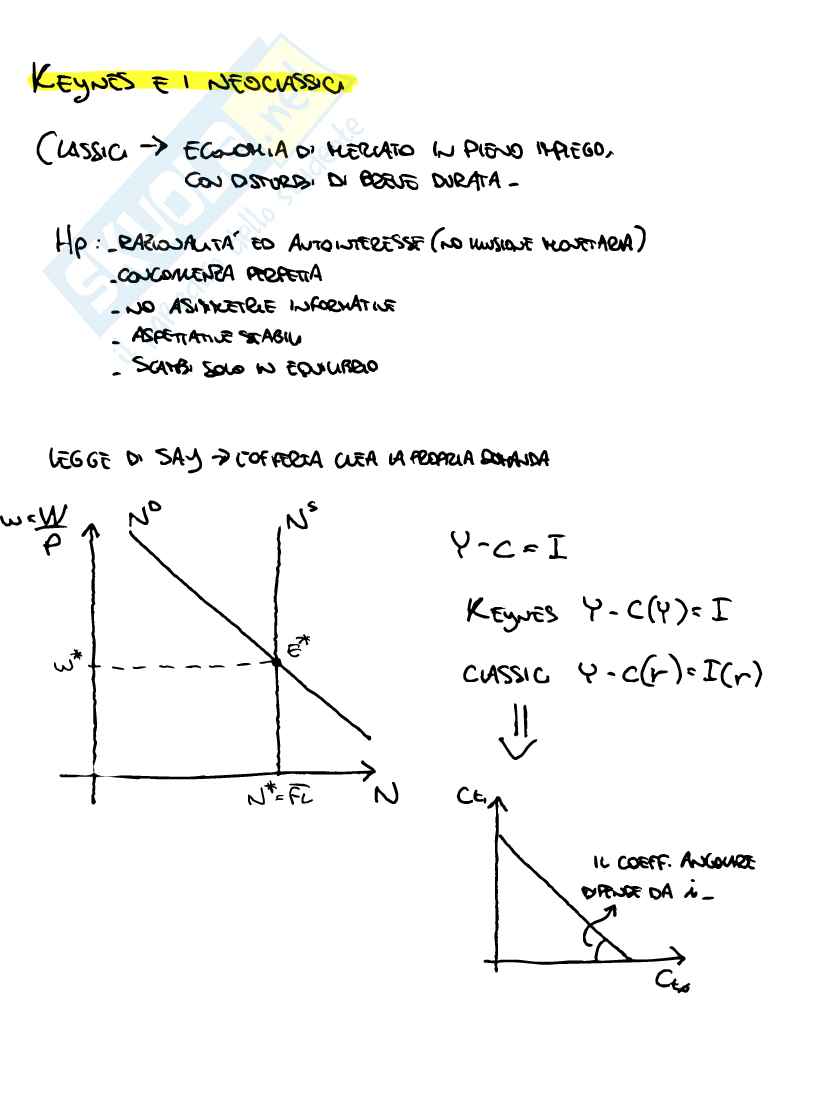 KEYNES E I NEOCLASSICI
CLASSICI → ECONOMIA DI MERCATO IN PIENO IMPIEGO,
CON DISTURBI DI BREVE DURATA -
Hp: - RAZIONALITÀ ED AUTOINTERESSE (NO ILLUSIONE MONETARIA)
- CONCORRENZA PERFETTA
- NO ASIMMETRIE INFORMATIVE
- ASPETTATIVE STABILI
- SCAMBI SOLO IN EQUILIBRIO
LEGGE DI SAY → L'OFFERTA CREA LA PROPRIA DOMANDA
w = W/P
N^D
N^S
E*
w*
N* = F̅L̅
N
Y - C = I
KEYNES Y - C(Y) = I
CLASSICI Y - C(r) = I(r)
⇓
Ct₁
IL COEFF. ANGOLARE
DIPENDE DA i -
Ct₀
SKUOLA.net